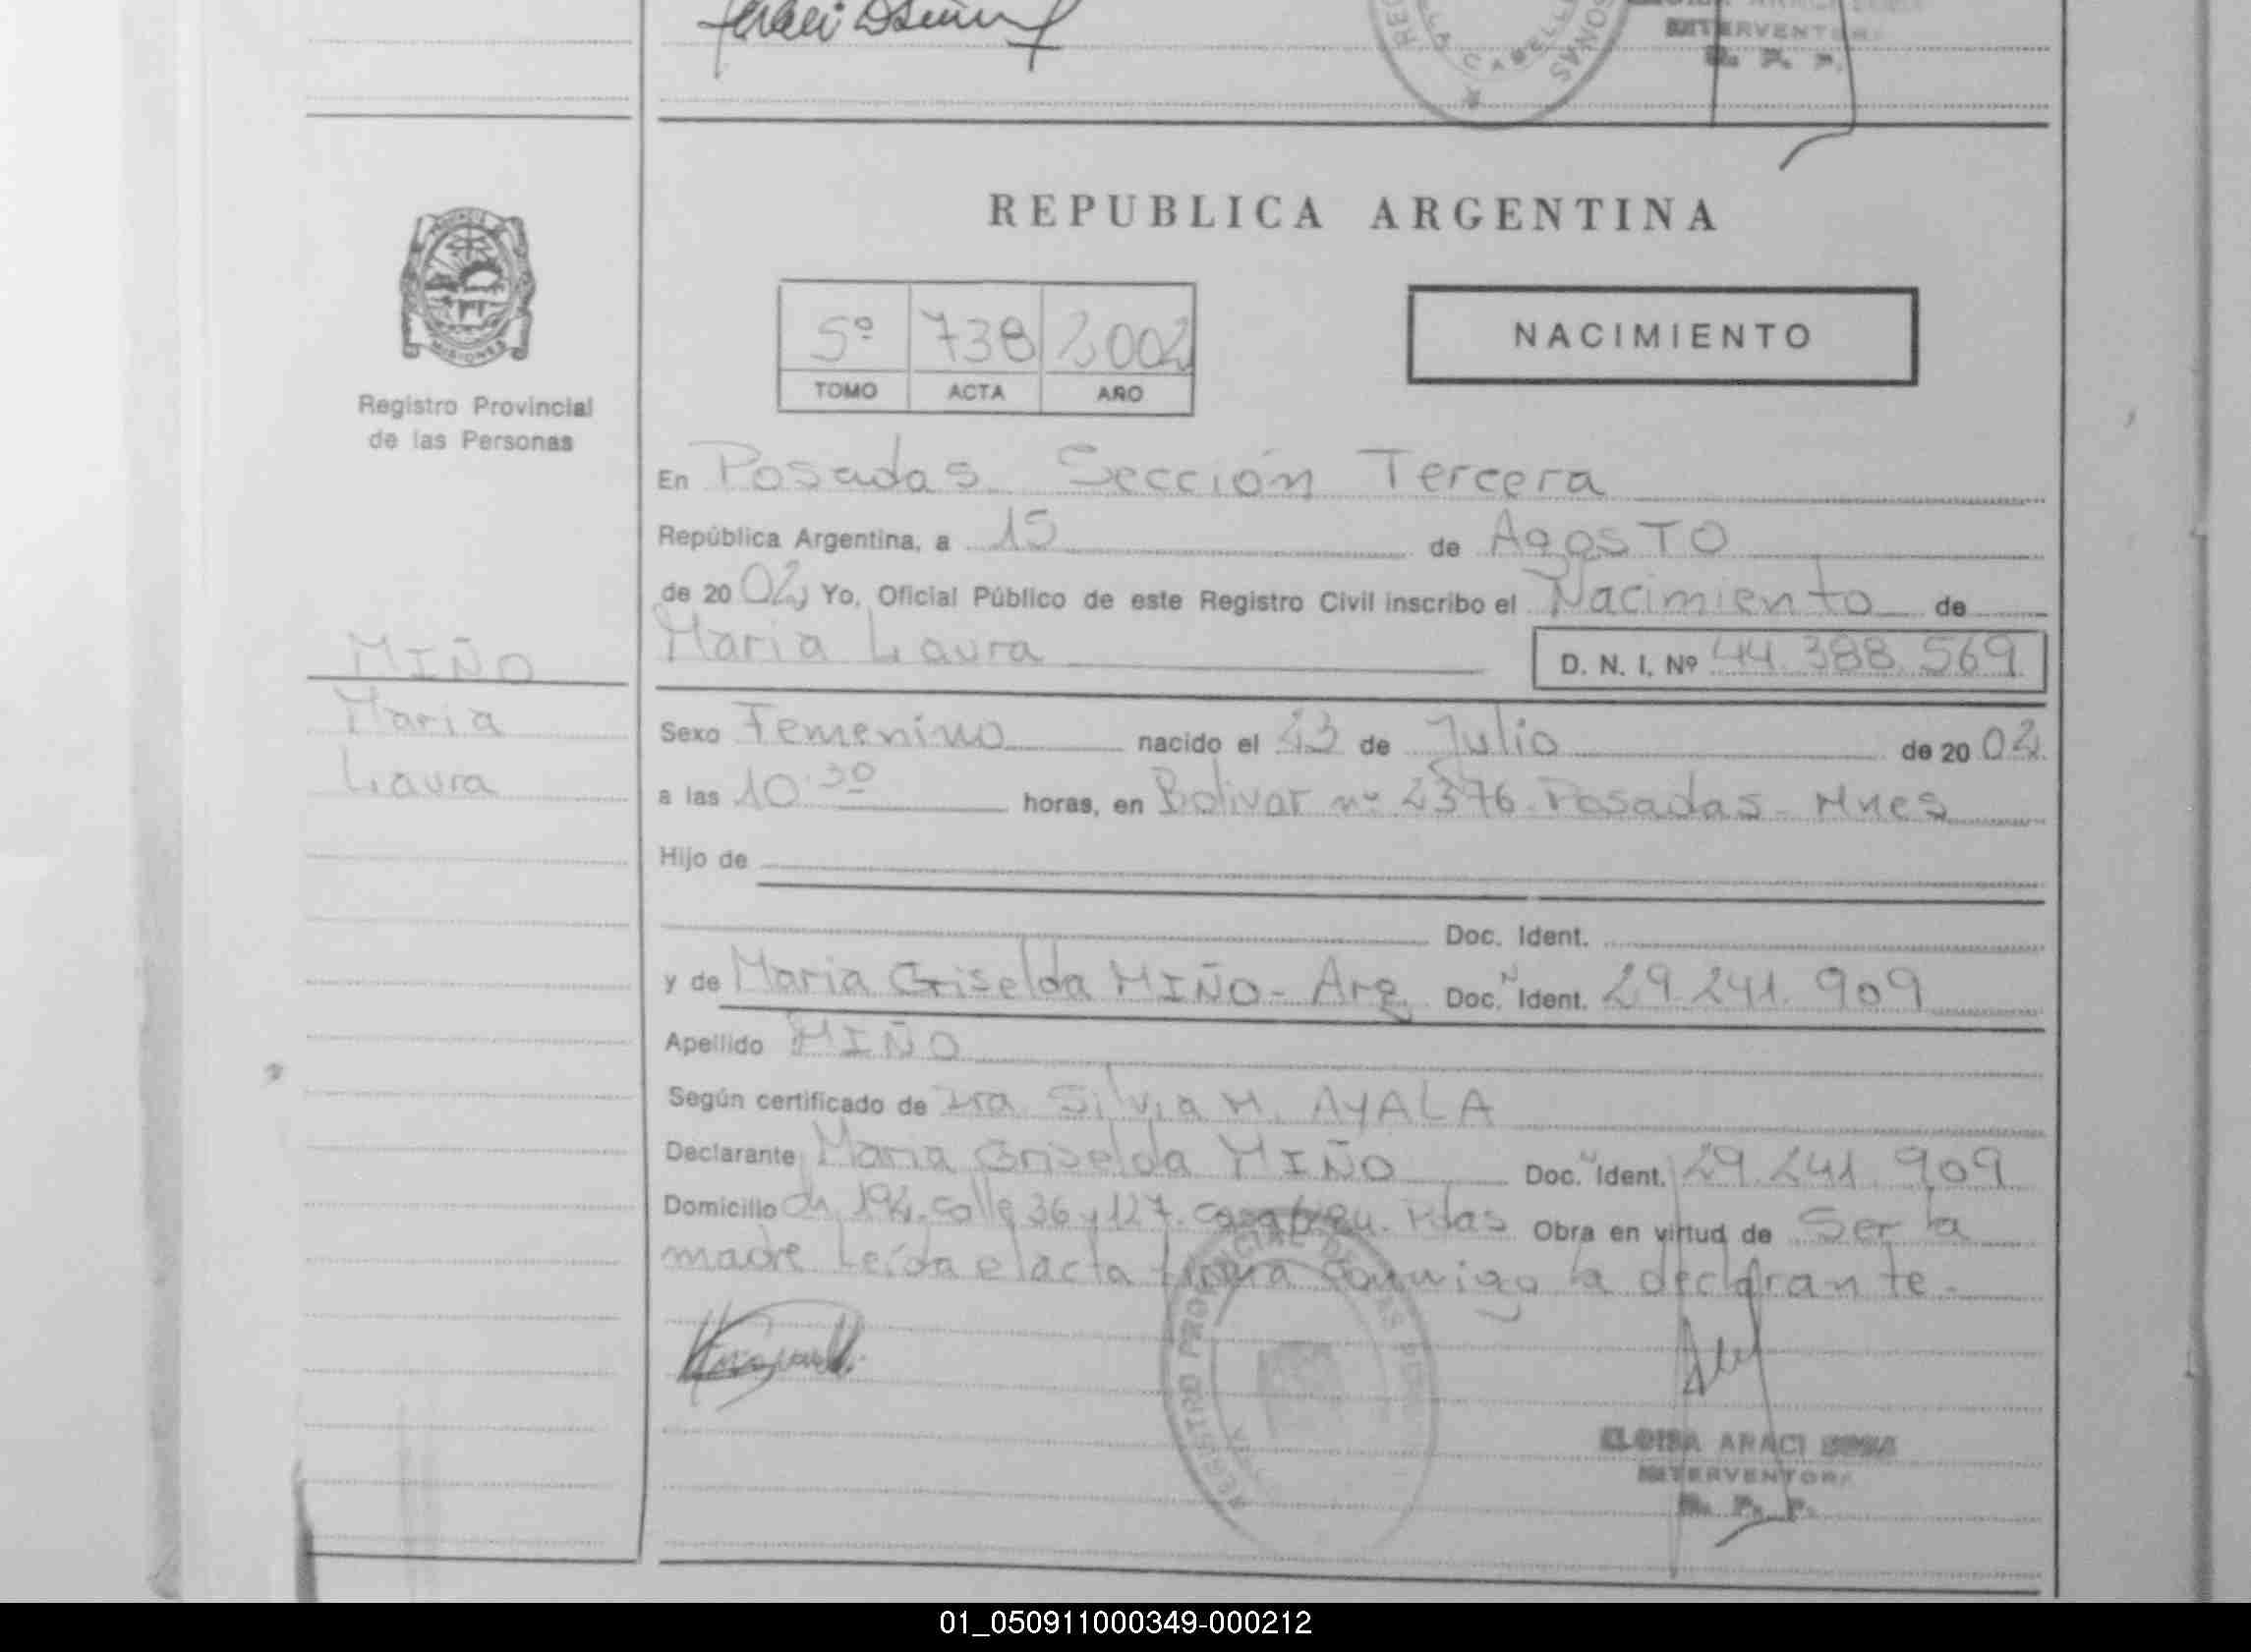 INTERVENTORA
R. P. P.
REPUBLICA ARGENTINA
MISIONES
Registro Provincial
de las Personas
5º 738 2002
TOMO ACTA AÑO
NACIMIENTO
En Posadas Sección Tercera
República Argentina, a 15 de Agosto
de 2002 Yo, Oficial Público de este Registro Civil inscribo el Nacimiento de
Maria Laura D. N. I. Nº 44.388.569
MIÑO
Maria
Laura
Sexo Femenino nacido el 23 de Julio de 2002
a las 10:30 horas, en Bolivar nº 2376 Posadas - Mnes
Hijo de
Doc. Ident.
y de Maria Griselda MIÑO - Arg. Doc. N Ident. 29.241.909
Apellido MIÑO
Según certificado de Dra. Silvia M. AYALA
Declarante Maria Griselda MIÑO Doc. N Ident. 29.241.909
Domicilio ch. 192. calle 36 y 127. Pdas Obra en virtud de Ser la
madre Leída el acta firma conmigo la declarante.
REGISTRO PROVINCIAL DE LAS
ELOISA ARACI
INTERVENTORA
R. P. P.
01_050911000349-000212